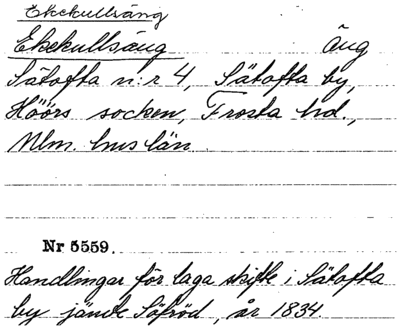 Ekekullsäng
Ekekullsäng Äng
Sätofta n:r 4, Sätofta by,
Höörs socken, Frosta hd.,
Mlm. hus län
Nr 5559.
Handlingar för laga skifte i Sätofta
by jämte Säfröd, år 1834.